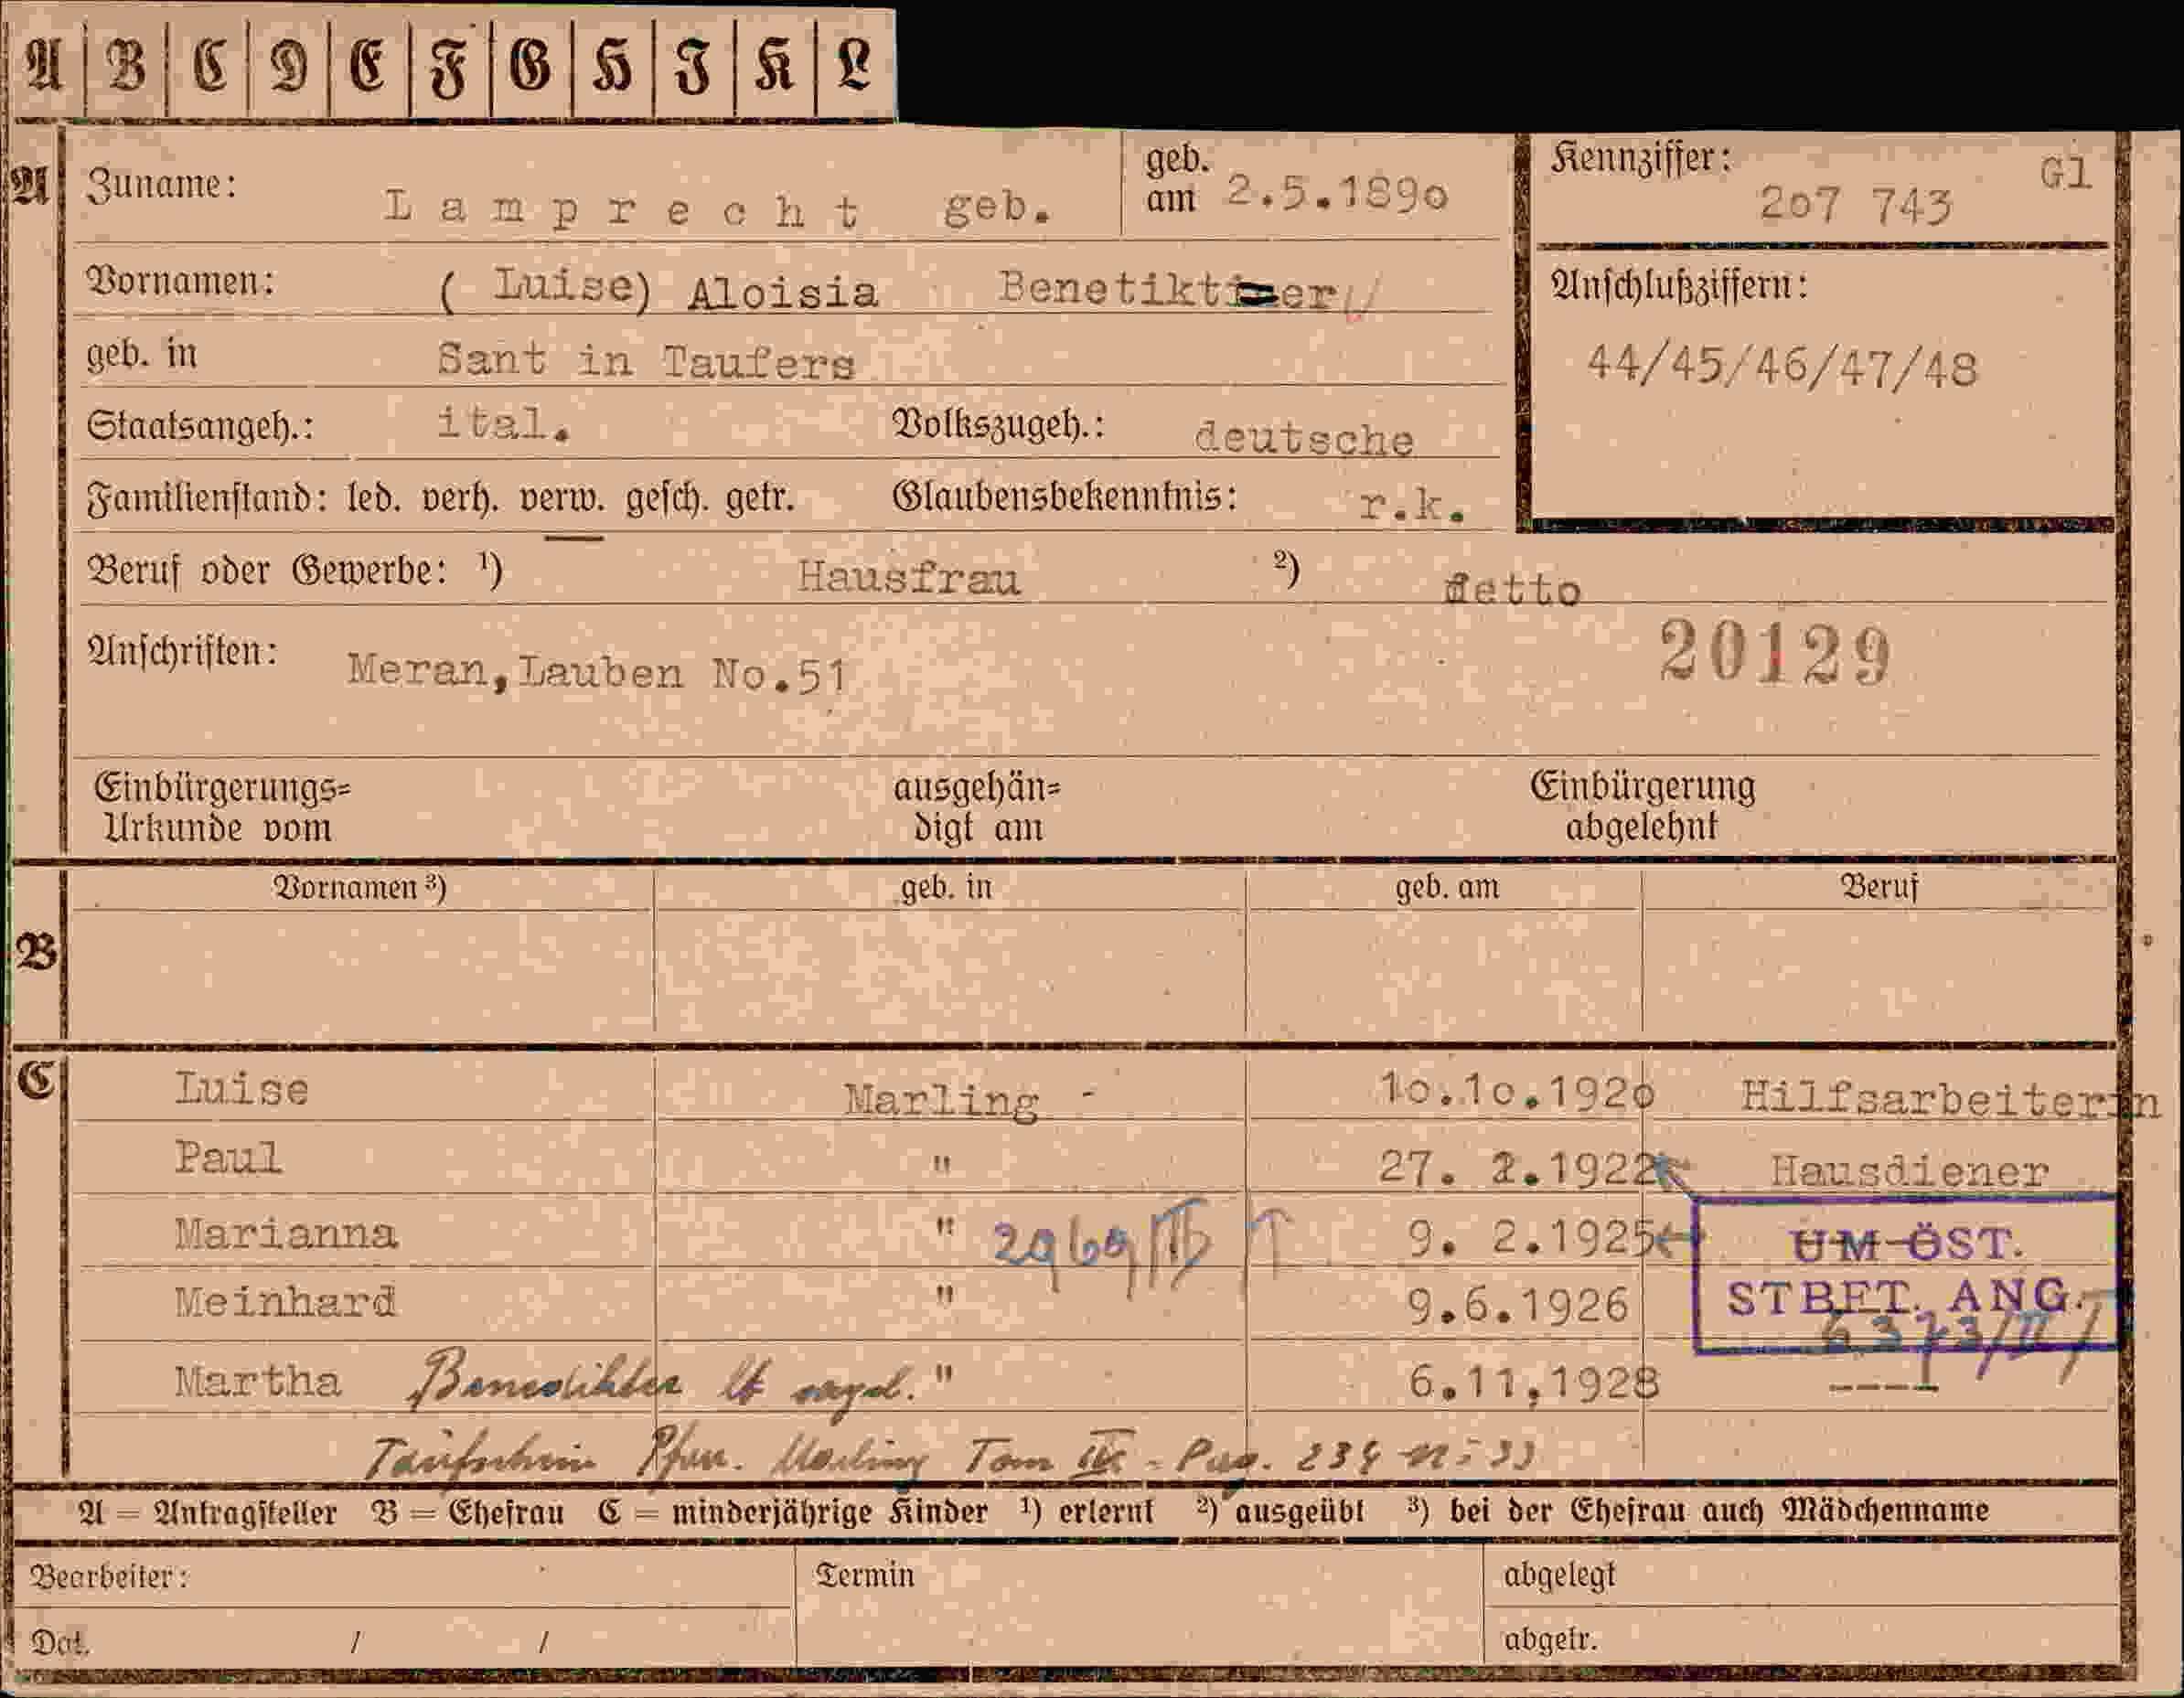 A B C D E F G H I K L
A Zuname: Lamprecht geb. geb. am 2.5.1890 Kennziffer: 207 743 Gl
Vornamen: ( Luise) Aloisia Benetikter Anschlußziffern:
geb. in Sant in Taufers 44/45/46/47/48
Staatsangeh.: ital. Volkszugeh.: deutsche
Familienstand: led. verh. verw. gesch. getr. Glaubensbekenntnis: r.k.
Beruf oder Gewerbe: ¹) Hausfrau ²) detto
Anschriften: Meran,Lauben No.51 20129
Einbürgerungs= ausgehän= Einbürgerung
Urkunde vom digt am abgelehnt
Vornamen ³) geb. in geb. am Beruf
B
C Luise Marling - 10.10.1920 Hilfsarbeiterin
Paul " 27. 2.1922 Hausdiener
Marianna " 9. 2.1925 UM-ÖST.
Meinhard " 9.6.1926 STBET. ANG.
Martha " 6.11,1928 ----
Taufschein Pfarr. Marling Tom - Pag. 234 N: 33
A = Antragsteller B = Ehefrau C = minderjährige Kinder ¹) erlernt ²) ausgeübt ³) bei der Ehefrau auch Mädchenname
Bearbeiter: Termin abgelegt
Dat. / / abgetr.